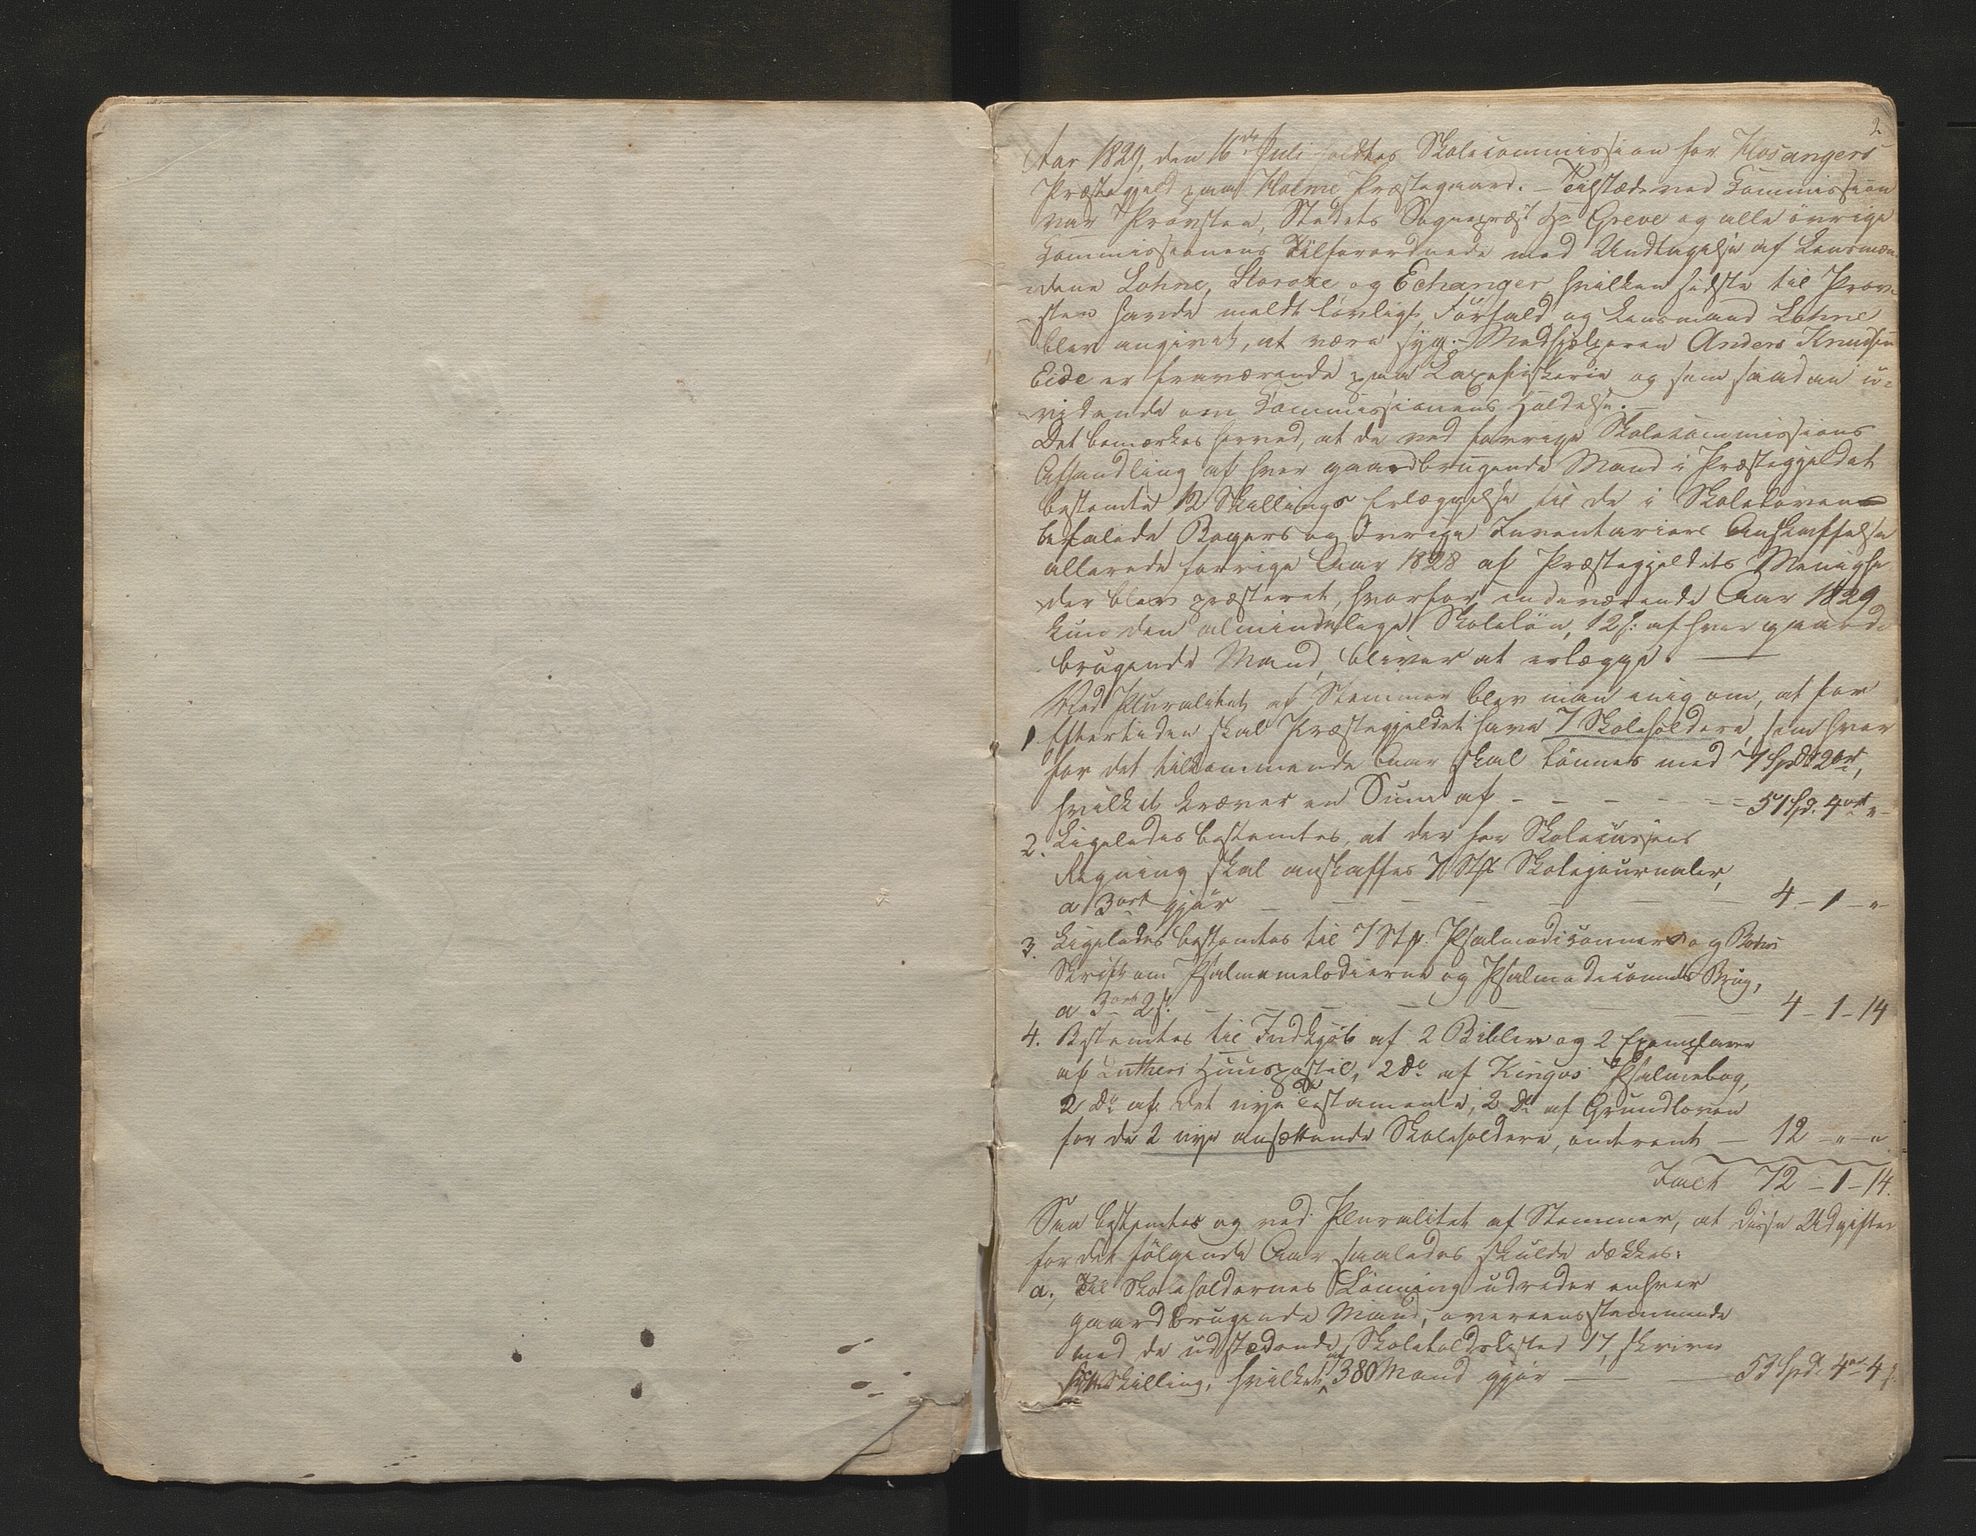 2
Aar 1829, den 16de Juli holdtes Skolecommission for Hosangers
Præstegjeld paa Holme Præstegaard. – Tilstæde ved Commissionen
var Provsten, Stedets Sognepræst Hr Greve og alle övrige
Commissionens Tilforordnede med Undtagelse af Lensmæn-
dene Lohne, Storoxe og Echanger, hvilken sidste til Prov-
sten havde meldt lovligt Forfald og Lensmand Lohne
blev angivet, at være syg. – Medhjelperen Anders Knudsen
Eide er fraværende paa Laxefiskerie og som saadan u-
vidende om Commissionens Holdelse. –
Det bemærkes herved, at de ved forrige Skolecommissions
Afhandling af hver gaardbrugende Mand i Præstegjeldet
bestemte 12 Skillings Erlæggelse til de i Skoleloven
befalede Bøgers og övrige Inventariers Anskaffelse
allerede forrige Aar 1828 af Præstegjeldets Menighe-
der blev præsteret, hvorfor indeværende Aar 1829
kun den almindelige Skolelön, 12 s: af hver gaard-
brugende Mand, bliver at erlægge. –
Ved Pluralitet af Stemmer blev man enig om, at for
1 Eftertiden skal Præstegjeldet have 7 Skoleholdere, som hver
for det tilkommende Aar skal lönnes med 7 Spd. 2 ort,
hvilket kræver en Sum af – – – – – 51 Spd. 4 ort „ –
2. Ligeledes bestemtes, at der for Skolecassens
Regning skal anskaffes 7 Stk Skolejournaler,
a 3 ort gjör – – – – – – 4 – 1 – „
3. Ligeledes bestemtes til 7 Stk. Psalmodiconner og Roverds
Skrift om Psalmemelodierne og Psalmodiconnets Brug,
a 3 ort 2 s. – – – – – – 4 – 1 – 14
4. Bestemtes til Indkjöb af 2 Bibler og 2 Exemplarer
af Luthers Huuspostil, 2 Do af Kingos Psalmebog,
2 Do af det nye Testamente, 2 Do af Grundloven
for de 2 nye ansættende Skoleholdere, omtrent – 12 – „ – „
Ialt 72 – 1 – 14.
Saa bestemtes og ved Pluralitet af Stemmer, at disse Udgifter
for det fölgende Aar saaledes skulde dækkes:
a., Til Skoleholdernes Lönning udreder enhver
gaardbrugende Mand, overeensstemmende
med de udstædende Skoleholdslister 17, skriver
Skilling, hvilket af 380 Mand gjör – – 53 Spd. 4 ort 4 s.